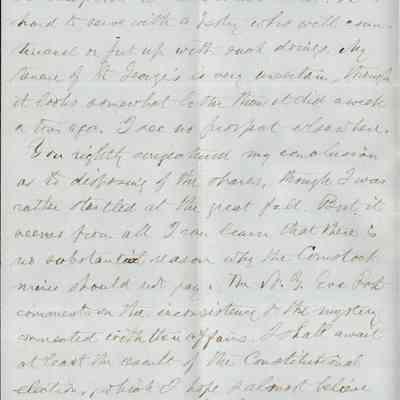 hard to serve with a vestry who will coun-
tenance or put up with such doings. My
tenure of St George's is very uncertain, though
it looks somewhat better than it did a week
or two ago. I see no prospect elsewhere.
You rightly my conclusion
as to disposing of the shares, though I was
rather startled at the great fall. But it
seems from all I can learn that there is
no substantial reason why the Comstock
mines should not pay. The N. Y. Eve Post
comments on the inconsistency & the mystery
connected with their affairs. I shall await
at least the result of the Constitutional
election, which I hope & almost believe